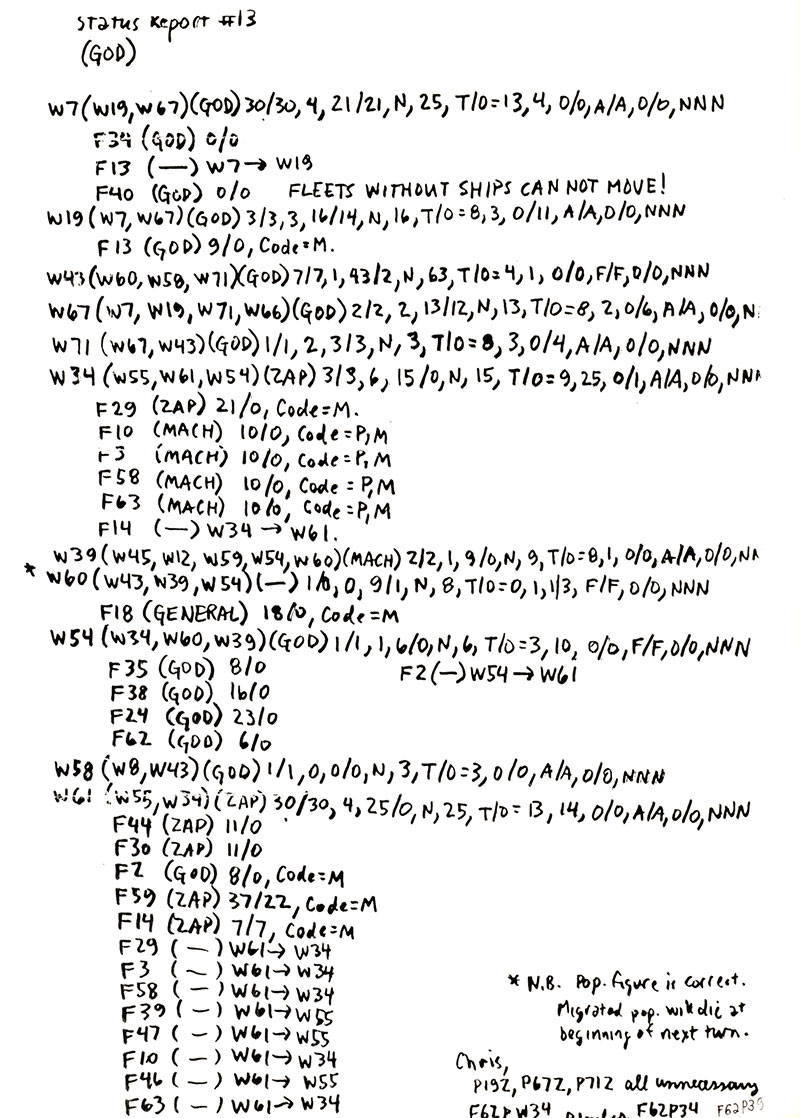 Status Report #13
(GOD)
W7(W19,W67)(GOD) 30/30, 4, 21/21, N, 25, T/O=13, 4, 0/0, A/A, 0/0, NNN
F34 (GOD) 0/0
F13 (—) W7→ W19
F40 (GOD) 0/0 FLEETS WITHOUT SHIPS CAN NOT MOVE!
W19(W7, W67)(GOD) 3/3, 3, 16/14, N, 16, T/O=8, 3, 0/11, A/A, 0/0, NNN
F13 (GOD) 9/0, Code=M.
W43(W60, W58, W71)(GOD) 7/7, 1, 43/2, N, 63, T/O=4, 1, 0/0, F/F, 0/0, NNN
W67(W7, W19, W71, W66)(GOD) 2/2, 2, 13/12, N, 13, T/O=8, 2, 0/6, A/A, 0/0, N
W71 (W67, W43)(GOD) 1/1, 2, 3/3, N, 3, T/O=8, 3, 0/4, A/A, 0/0, NNN
W34 (W55, W61, W54)(ZAP) 3/3, 6, 15/0, N, 15, T/O=9, 25, 0/1, A/A, 0/0, NNN
F29 (ZAP) 21/0, Code=M.
F10 (MACH) 10/0, Code=P,M
F3 (MACH) 10/0, Code=P,M
F58 (MACH) 10/0, Code=P,M
F63 (MACH) 10/0, Code=P,M
F14 (—) W34 → W61.
W39(W45, W12, W59, W54, W60)(MACH) 2/2, 1, 9/0, N, 9, T/O=8, 1, 0/0, A/A, 0/0, NN
* W60(W43, W39, W54)(—) 1/0, 0, 9/1, N, 8, T/O=0, 1, 1/3, F/F, 0/0, NNN
F18 (GENERAL) 18/0, Code=M
W54 (W34, W60, W39)(GOD) 1/1, 1, 6/0, N, 6, T/O=3, 10, 0/0, F/F, 0/0, NNN
F35 (GOD) 8/0 F2(—)W54→W61
F38 (GOD) 16/0
F24 (GOD) 23/0
F62 (GOD) 6/0
W58 (W8, W43)(GOD) 1/1, 0, 0/0, N, 3, T/O=3, 0/0, A/A, 0/0, NNN
W61 (W55, W34)(ZAP) 30/30, 4, 25/0, N, 25, T/O=13, 14, 0/0, A/A, 0/0, NNN
F44 (ZAP) 11/0
F30 (ZAP) 11/0
F2 (GOD) 8/0, Code=M
F59 (ZAP) 37/22, Code=M
F14 (ZAP) 7/7, Code=M
F29 (—) W61→ W34
F3 (—) W61→ W34
F58 (—) W61→ W34
F39 (—) W61→ W55
F47 (—) W61→ W55
F10 (—) W61→ W34
F46 (—) W61→ W55
F63 (—) W61→ W34
* N.B. Pop. figure is correct.
Migrated pop. will die at
beginning of next turn.
Chris,
P19Z, P67Z, P71Z all unnecessary
F62P34 F62P39